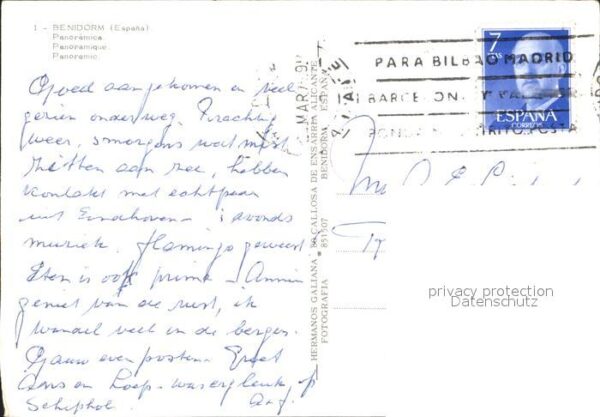 1 - BENIDORM (España)
Panorámica
Panoramique
Panoramic
Goed aangekomen en veel
gezien onderweg. Prachtig
weer, smorgens wat mist
zitten aan zee, hebben
kontakt met echtpaar
uit Eindhoven. 's avonds
muziek, flamingo geweest
Eten is ook prima - Annie
geniet van de rust, ik
wandel veel in de bergen.
Gauw even posten. Groet
Ans en was erg leuk, op
Schiphol.
HERMANOS GALIANA - CALLOSA DE ENSARRIA ALICANTE
FOTOGRAFIA 851507 BENIDORM ESPAÑA
MAR
7
PTS
ESPAÑA
CORREOS
PARA BILBAO MADRID
BARCELONA Y
DISTRITO POSTAL
privacy protection
Datenschutz